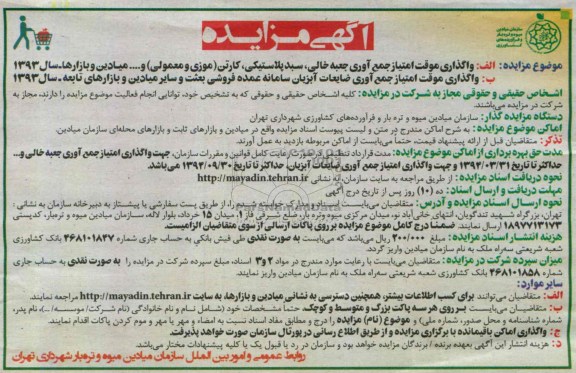 آگهی مزایده
سازمان میادین میوه و تره بار و فرآورده‌های کشاورزی
موضوع مزایده: الف: واگذاری موقت امتیاز جمع آوری جعبه خالی، سبد پلاستیکی، کارتن (موزی و معمولی) و.... میادین و بازارها-سال ۱۳۹۳
ب: واگذاری موقت امتیاز جمع آوری ضایعات آبزیان سامانه عمده فروشی بعثت و سایر میادین و بازارهای تابعه - سال ۱۳۹۳
اشخاص حقیقی و حقوقی مجاز به شرکت در مزایده: کلیه اشخاص حقیقی و حقوقی که به تشخیص خود، توانایی انجام فعالیت موضوع مزایده را دارند، مجاز به
شرکت در مزایده می‌باشند.
دستگاه مزایده گذار: سازمان میادین میوه و تره بار و فرآورده‌های کشاورزی شهرداری تهران
اماکن موضوع مزایده: به شرح اماکن مندرج در متن و لیست پیوست اسناد مزایده واقع در میادین و بازارهای ثابت و بازارهای محله‌ای سازمان میادین.
تذکر: متقاضیان قبل از ارائه پیشنهاد قیمت، حتماً می‌بایست از اماکن مربوطه بازدید به عمل آورند.
مدت حق بهره‌برداری از اماکن موضوع مزایده: مدت قرارداد تنظیمی در صورت رعایت کامل قوانین و مقررات سازمان، جهت واگذاری امتیاز جمع آوری جعبه خالی و...
حداکثر تا تاریخ ۱۳۹۴/۰۳/۳۱ و جهت واگذاری امتیاز جمع آوری ضایعات آبزیان، حداکثر تا تاریخ ۱۳۹۴/۰۹/۳۰ می‌باشد.
نحوه دریافت اسناد مزایده: از طریق مراجعه به سایت سازمان به نشانی http://mayadin.tehran.ir
مهلت دریافت و ارسال اسناد: ده (۱۰) روز پس از تاریخ درج آگهی
نحوه ارسال اسناد مزایده و آدرس: متقاضیان می‌بایست اسناد و مدارک خواسته شده را، از طریق پست سفارشی یا پیشتاز به دبیرخانه سازمان به نشانی:
تهران، بزرگراه شهید تندگویان، انتهای خانی‌آباد نو، میدان مرکزی میوه و تره بار، ضلع شرقی فاز ۱، میدان ۱۵ خرداد، بلوار لاله، سازمان میادین میوه و تره‌بار، کدپستی
۱۸۹۷۷۱۳۱۷۳ ارسال نمایند. ضمناً درج کامل موضوع مزایده بر روی پاکات ارسالی از سوی متقاضیان الزامیست.
هزینه انتشار اسناد مزایده: مبلغ ۲۰۰/۰۰۰ ریال می‌باشد که می‌بایست به صورت نقدی طی فیش بانکی به حساب جاری شماره ۴۶۸۱۰۱۸۳۷ بانک کشاورزی
شعبه شریعتی سه‌راه ملک به نام سازمان میادین واریز گردد.
میزان سپرده شرکت در مزایده: متقاضیان می‌بایست با رعایت موارد مندرج در مواد ۲و۳ اسناد، مبلغ سپرده شرکت در مزایده را به صورت نقدی به حساب جاری
شماره ۴۶۸۱۰۱۸۵۸ بانک کشاورزی شعبه شریعتی سه‌راه ملک به نام سازمان میادین واریز نمایند.
سایر موارد:
الف: متقاضیان می‌توانند برای کسب اطلاعات بیشتر، همچنین دسترسی به نشانی میادین و بازارها، به سایت http://mayadin.tehran.ir مراجعه نمایند.
ب: متقاضیان می‌بایست بر روی هر سه پاکت بزرگ و متوسط و کوچک، حتماً مشخصات خود (شامل نام و نام خانوادگی (نام شرکت/ موسسه/...)، نام پدر،
شماره شناسنامه و محل صدور، شماره ملی) و موضوع (نام) مزایده را درج و مطابق مفاد اسناد نسبت به امضاء و مهر یا مهر و موم کردن پاکات اقدام نمایند.
ج: واگذاری اماکن باقیمانده با برگزاری مزایده و از طریق اطلاع رسانی در پورتال سازمان صورت خواهد پذیرفت.
د: هزینه انتشار این آگهی بعهده برنده / برندگان مزایده خواهد بود و سازمان در رد یا قبول یک یا کلیه پیشنهادات مختار می‌باشد.
روابط عمومی و امور بین الملل سازمان میادین میوه و تره‌بار شهرداری تهران